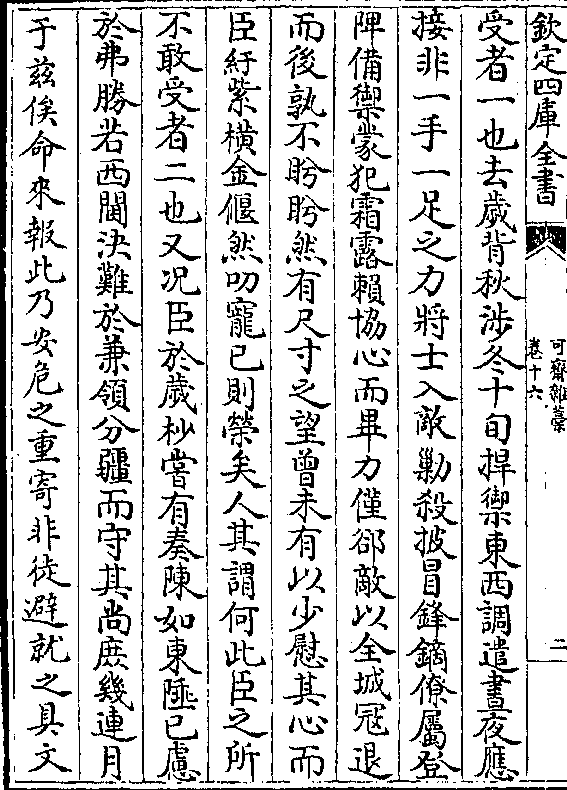 欽定四庫全書
可齋雜藁
卷十六
二
受者一也去歲背秋涉冬十旬捍禦東西調遣晝夜應
接非一手一足之力將士入敵勦殺披冒鋒鏑僚屬登
陴備禦蒙犯霜露賴協心而畢力僅郤敵以全城冦退
而後孰不盻盻然有尺寸之望曾未有以少慰其心而
臣紆紫横金偃然叨寵已則榮矣人其謂何此臣之所
不敢受者二也又况臣於歲杪嘗有奏陳如東陲已慮
於弗勝若西閫決難於兼領分疆而守其尚庶幾連月
于兹俟命來報此乃安危之重寄非徒避就之具文